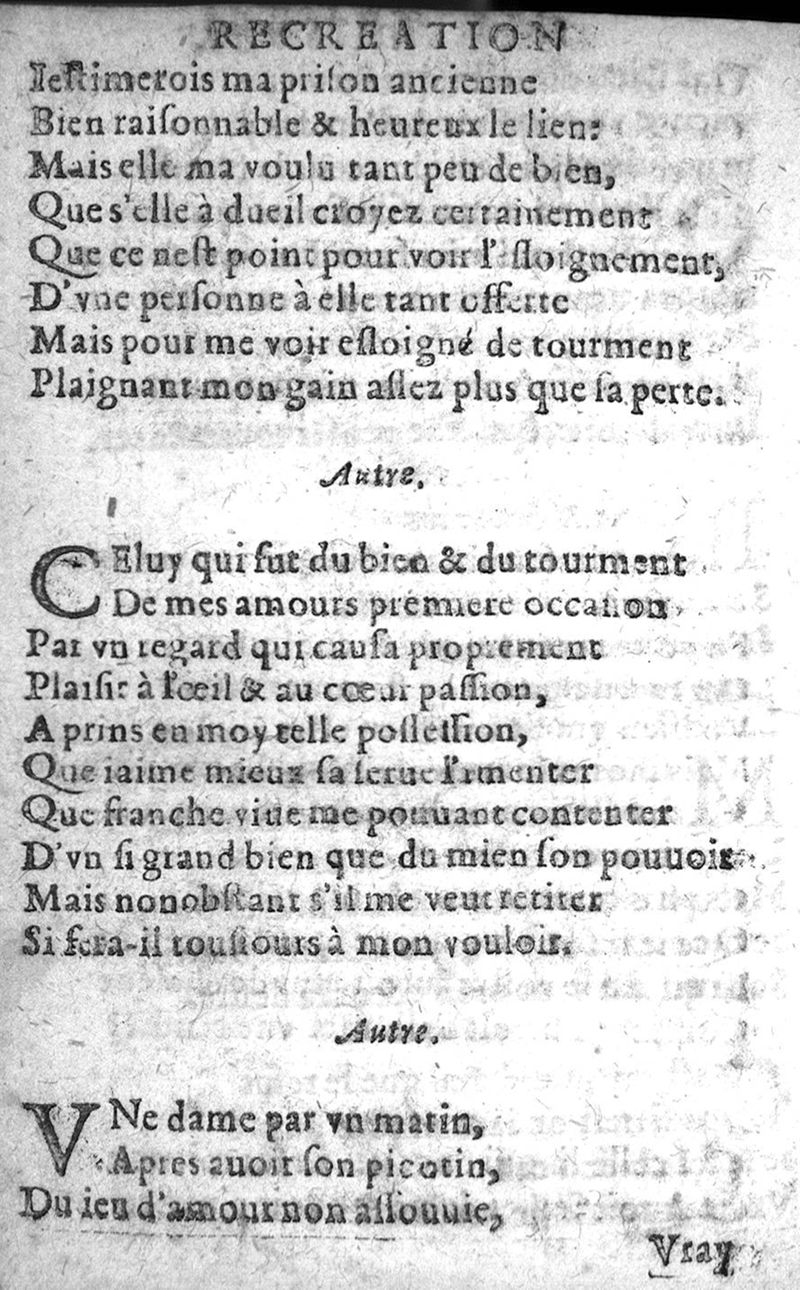 RECREATION
Iestimerois ma prison ancienne
Bien raiſonnable & heureux le lien:
Mais elle ma voulu tant peu de bien,
Que s'elle à dueil croyez certainement
Que ce neſt point pour voir l'eſloignement,
D'vne perſonne à elle tant offerte
Mais pour me voir eſloigné de tourment
Plaignant mon gain aſſez plus que ſa perte.
Autre.
CEluy qui fut du bien & du tourment
De mes amours premiere occaſion
Par vn regard qui cauſa proprement
Plaiſir à l'œil & au cœur paſſion,
A prins en moy telle poſſeſſion,
Que iaime mieux ſa ſerue
Que franche viue me pouuant contenter
D'vn ſi grand bien que du mien ſon pouuoir
Mais nonobſtant s'il me veut retirer
Si ſera-il touſiours à mon vouloir.
Autre.
VNe dame par vn matin,
Apres auoir ſon picotin,
Du ieu d'amour non aſſouuie,
Vray